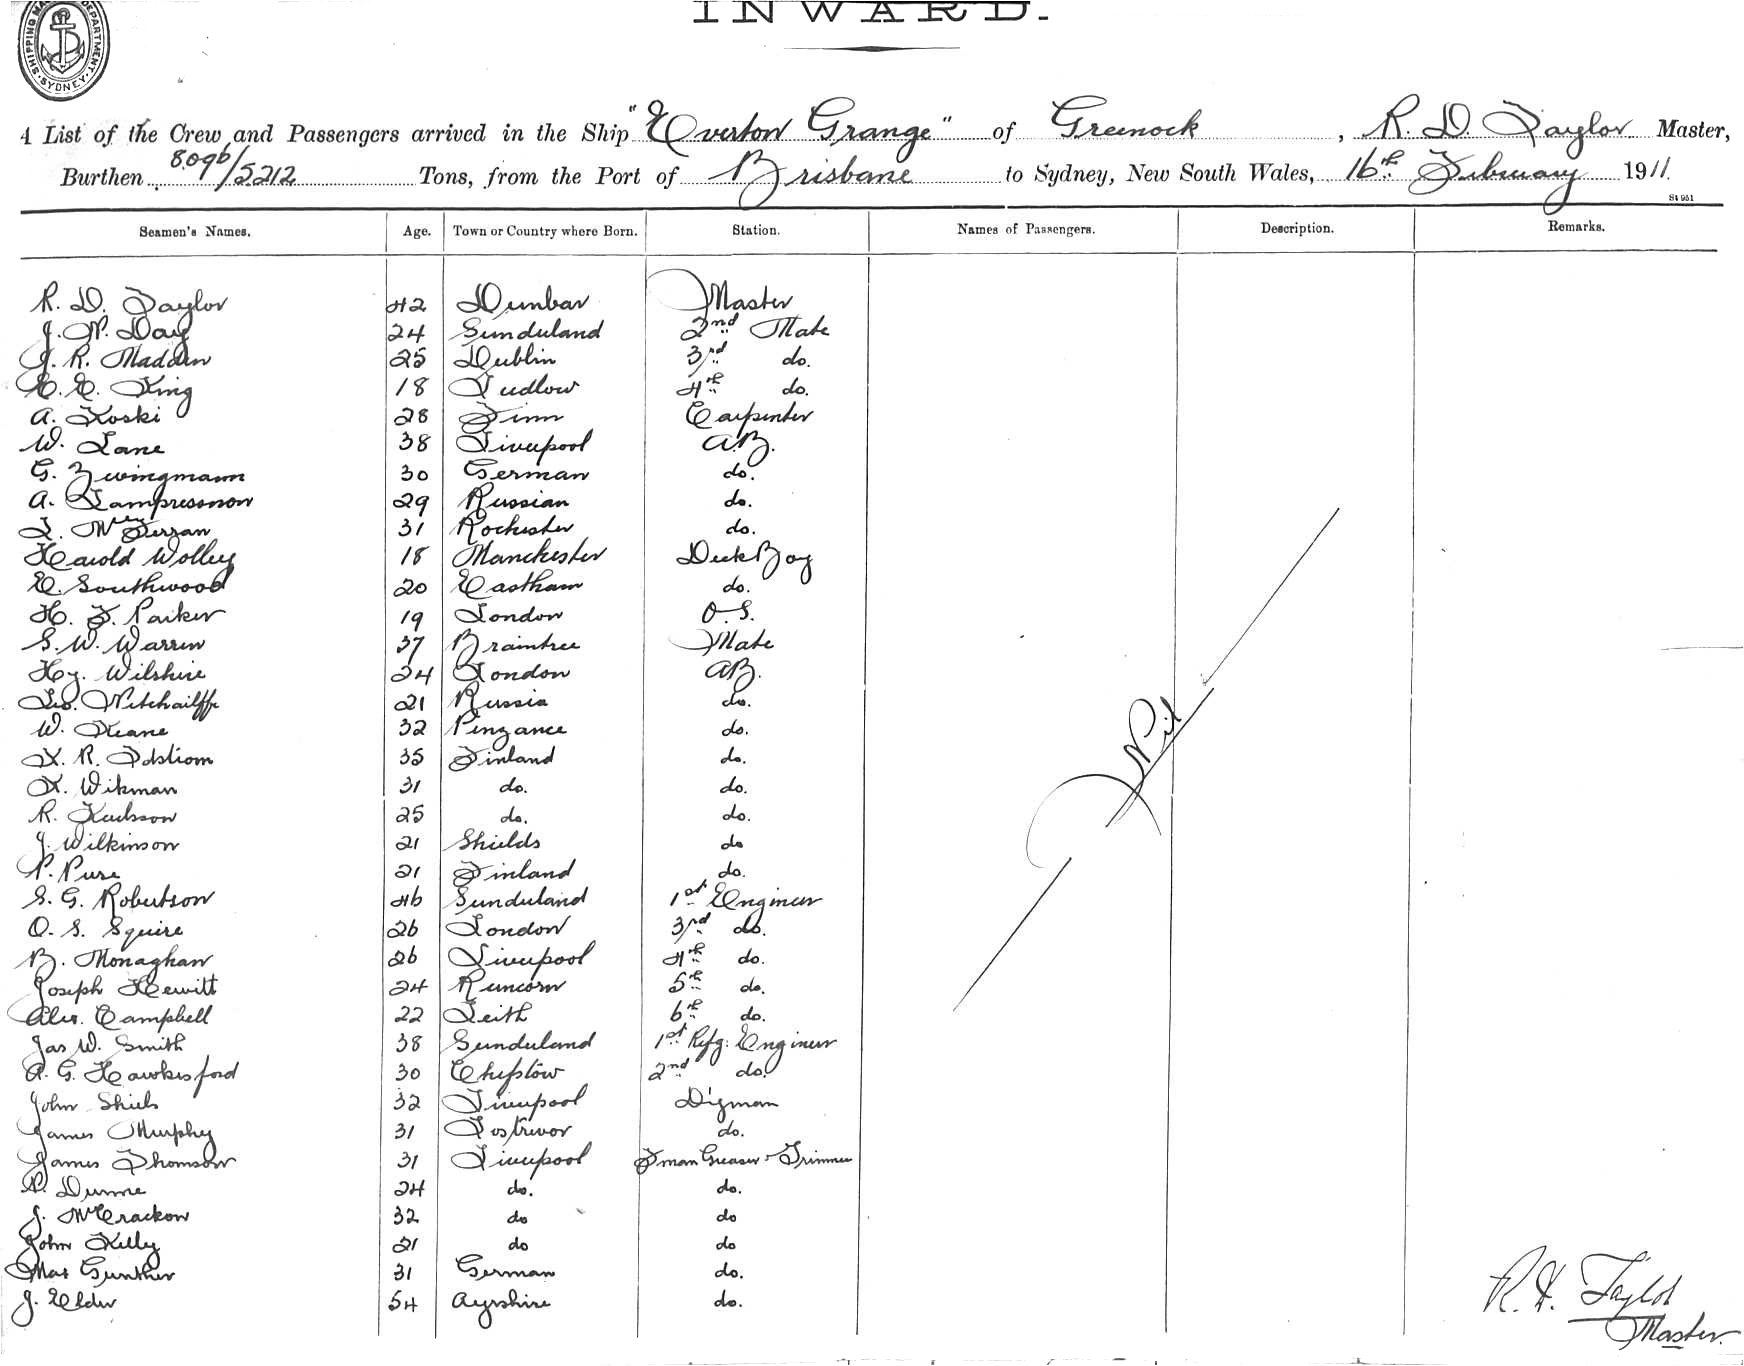 INWARD.
SHIPPING MA DEPARTMENT. SYDNEY.
A List of the Crew and Passengers arrived in the Ship "Everton Grange" of Greenock, R. D. Taylor Master,
Burthen 8096/5212 Tons, from the Port of Brisbane to Sydney, New South Wales, 16th February 1911.
St 951
Seamen's Names. Age. Town or Country where Born. Station. Names of Passengers. Description. Remarks.
R. D. Taylor 42 Dunbar Master
J. N. Day 24 Sunderland 2nd Mate
J. R. Madden 25 Dublin 3rd do.
E. E. King 18 Ludlow 4th do.
A. Koski 28 Finn Carpenter
W. Lane 38 Liverpool A.B.
G. Zwingmann 30 German do.
A. 29 Russian do.
31 Rochester do.
Harold Wolley 18 Manchester Deck Boy
E. Southwood 20 Eastham do.
H. F. Parker 19 London O.S.
S. W. Warren 37 Braintree Mate
Hy. Wilshire 24 London AB.
21 Russia do.
W. Keane 32 Penzance do.
K. R. 35 Finland do.
K. Wikman 31 do. do.
R. 25 do. do.
J. Wilkinson 21 Shields do
P. Pure 21 Finland do.
S. G. Robertson 46 Sunderland 1st Engineer
O. S. Squire 26 London 3rd do.
B. Monaghan 26 Liverpool 4th do.
Joseph Hewitt 24 Runcorn 5th do.
Alex. Campbell 22 Leith 6th do.
Jas W. Smith 38 Sunderland 1st Refg. Engineer
A. G. Hawkesford 30 Chepstow 2nd do.
John Shiels 32 Liverpool D'kman
James Murphy 31 Rostrevor do.
James Thomson 31 Liverpool Fman Greaser & Trimmer
P. Dunne 24 do. do.
J. McCrackon 32 do do
John Kelly 21 do do
Max Gunther 31 German do.
J. Elder 54 Ayrshire do.
Nil
R. D. Taylor
Master.